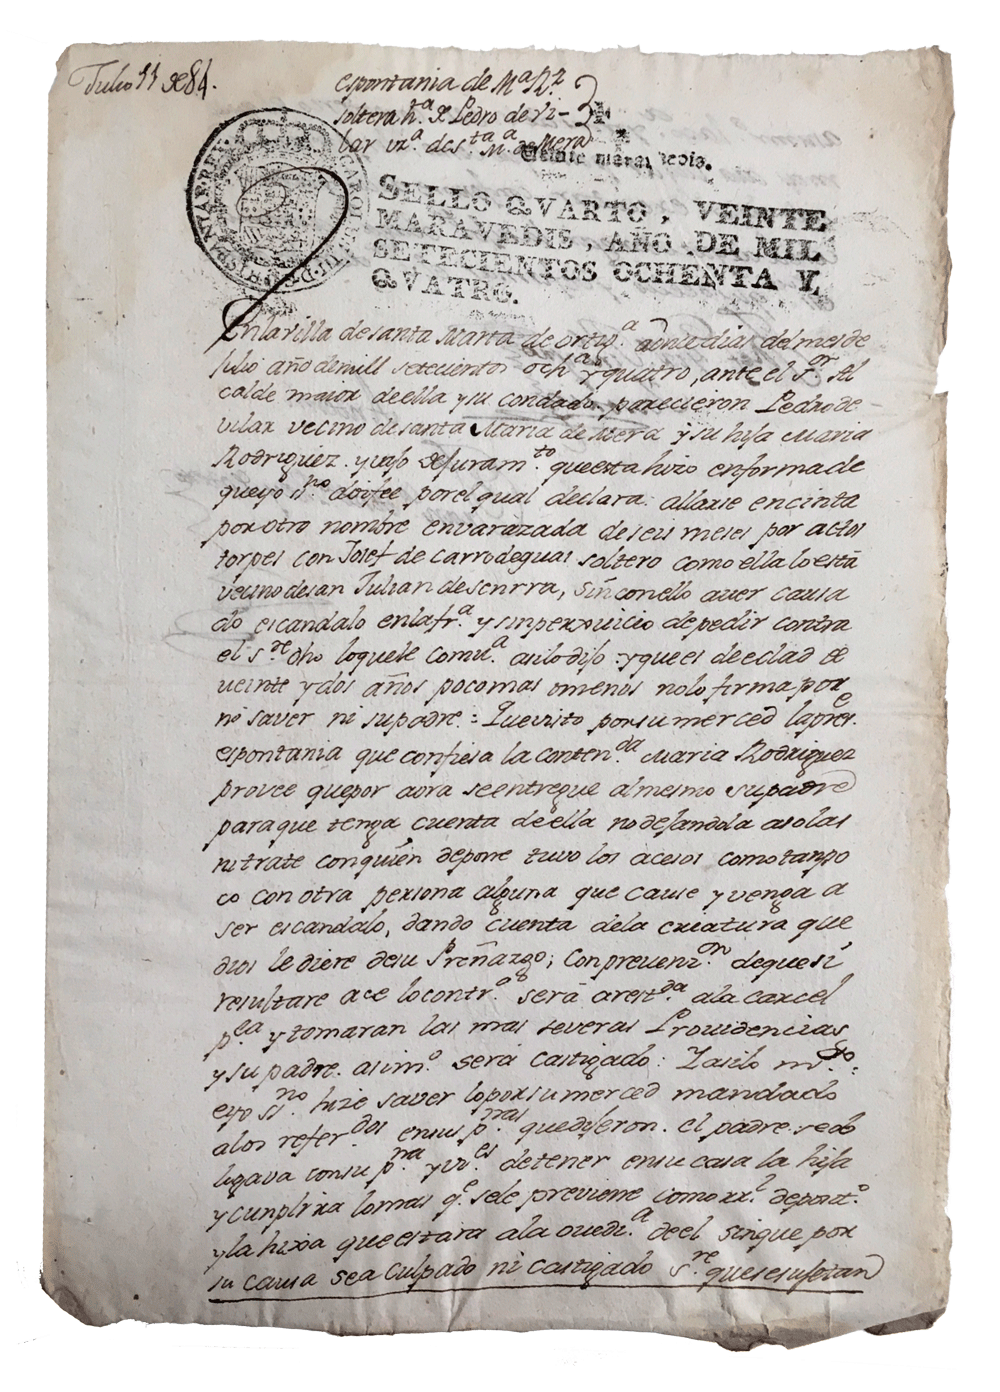 Julio 11 de 84.
espontania de Mª Rz
soltera hª de Pedro de Vi-
lar vzª. de stª Mª de Mera
Veinte maravedis.
SELLO QVARTO, VEINTE
MARAVEDIS, AÑO DE MIL
SETECIENTOS OCHENTA Y
QVATRO.
En la villa de santa Marta de ortigª. a once dias del mes de
Julio año de mill setecientos ochtª y quatro, ante el Sor. Al
calde maior de ella y su condado. parecieron Pedro de
vilar vecino de santa Maria de Mera y su hija Maria
Rodriguez. y vajo de juramto. que esta hizo en forma de
que yo ssno. doi fee por el qual declara: allarse en cinta
por otro nombre envarazada de seis meses por actos
torpes con Josef de Carrodeguas soltero como ella lo está
vecino de san Julian de senrra, sin con ello aver causa
do escandalo en la frª. y sin perxuicio de pedir contra
el sre. dho loque le comvª. asi lo dijo: y que es de edad de
veinte y dos años poco mas o menos no lo firma por
no saver ni su padre.: Que visto por su merced la prese.
espontania que confiesa la contenda. Maria Rodriguez
provee que por aora se entregue al mesmo su padre
para que tenga cuenta de ella no dejandola a solas
ni trate con quien depone tuvo los acesos como tanpo
co con otra persona alguna que cause y venga a
ser escandalo, dando cuenta de la criatura que
dios le diere de su Preñazgo; Con prevenzn. de que si
resultare ace lo contro. será arestda. a la carcel
pca. y tomaran las mas severas Providencias
y su padre. asimo. será castigado: Y asi lo mdo.:
e yo ssno. hize saver lo por su merced mandado
a los referdos en sus pnas que dijeron. el padre. se ob
ligava con su pna y vves. de tener en su casa la hija
y cunplira lo mas qe. se le previene como rrl. depostº.
y la hixa que estara a la ovediª de el sin que por
su causa sea culpado ni castigado sre. que se sujetan